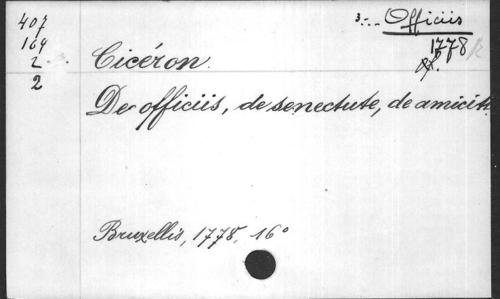 407
169
2
2
3-.. Officiis
1778
Cicéron.
De officiis, de senectute, de amicit.
Bruxellis, 1778, 16°